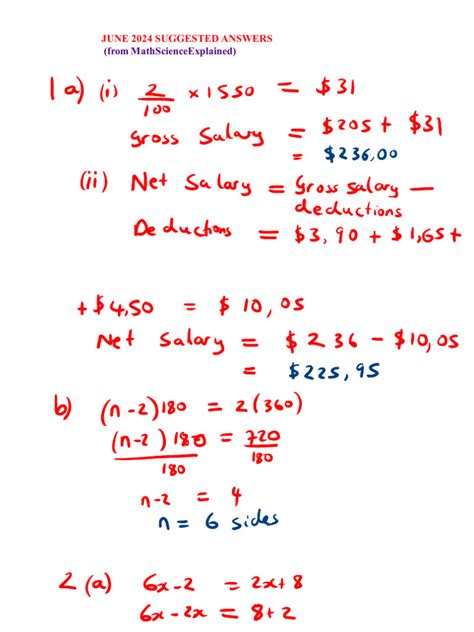 JUNE 2024 SUGGESTED ANSWERS
(from MathScienceExplained)
1 a) (i) 2/100 × 1550 = $31
Gross Salary = $205 + $31
= $236,00
(ii) Net Salary = Gross salary — deductions
Deductions = $3,90 + $1,65 +
+ $4,50 = $10,05
Net Salary = $236 - $10,05
= $225,95
b) (n-2)180 = 2(360)
(n-2)180/180 = 720/180
n-2 = 4
n = 6 sides
2 (a) 6x-2 = 2x+8
6x-2x = 8+2